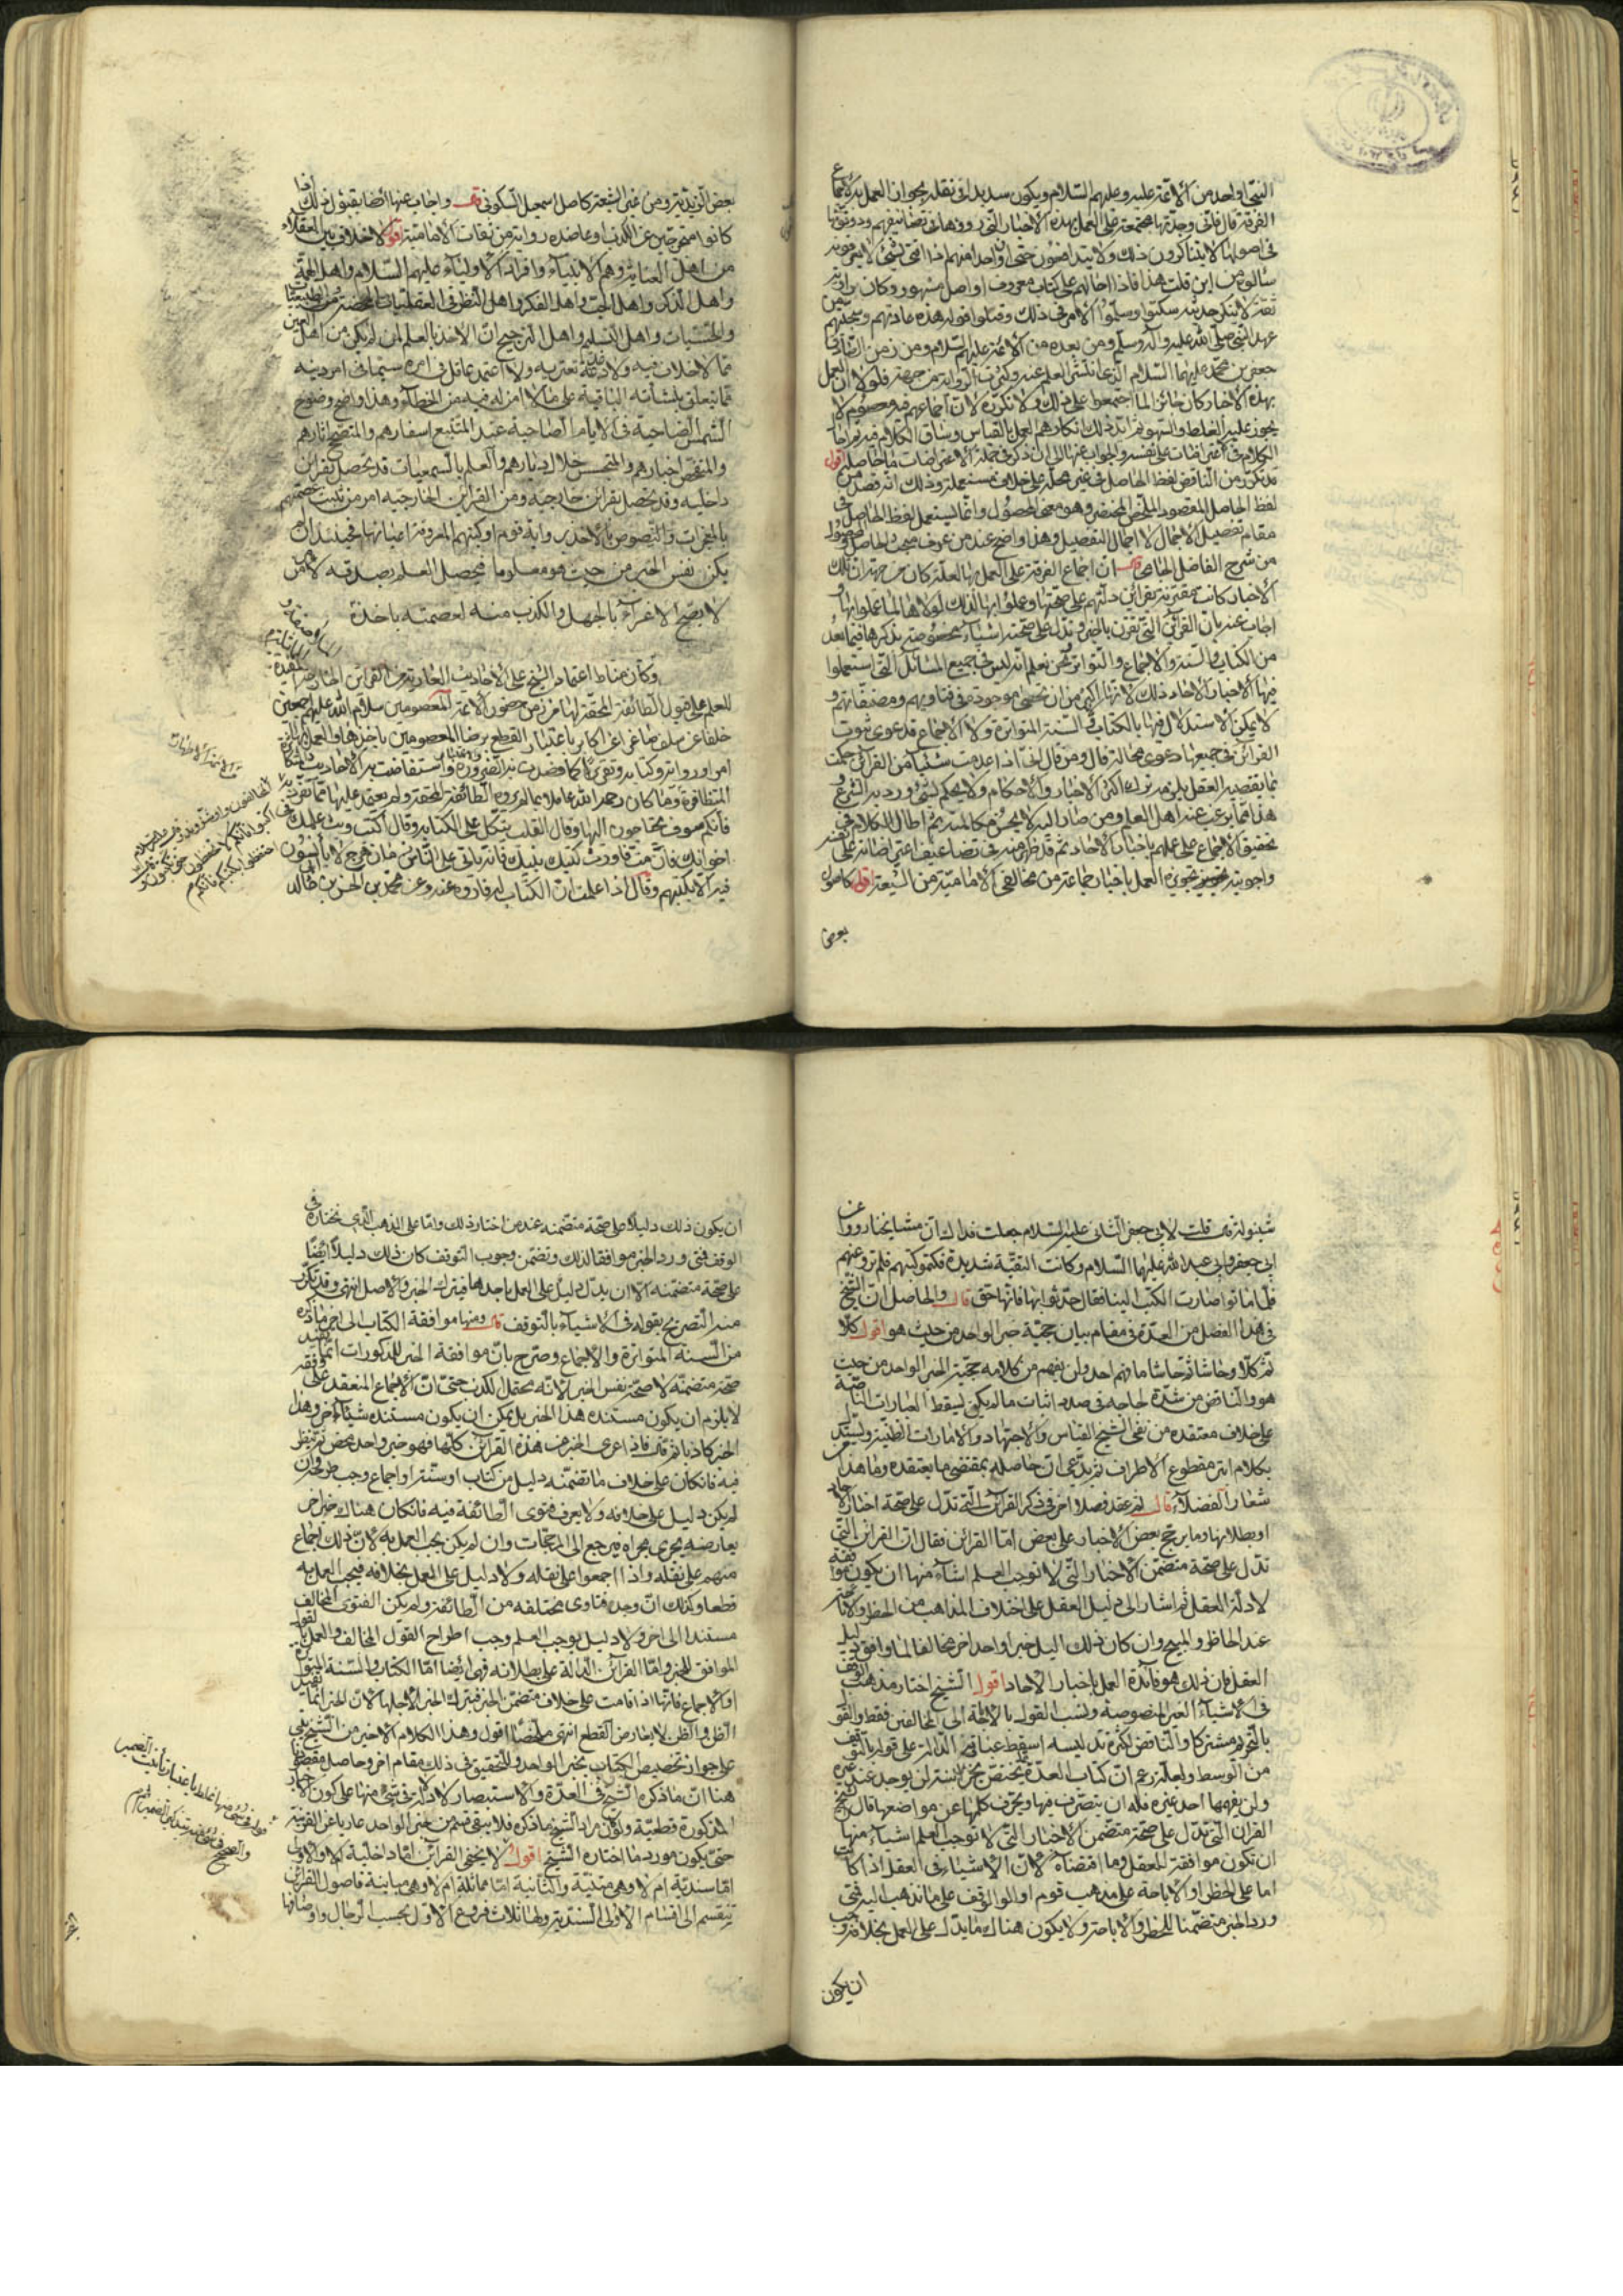 النبي او واحد من الائمة عليه وعليهم السلام ويكون سديدا في نقله يجوز ان العمل به لاجماع
الفرقة قال فانى وجدتها مجمعة على العمل بهذه الاخبار التي رووها في تصانيفهم ودونوها
في اصولهم لا يتناكرون ذلك ولا يتدافعون حتى ان واحدا منهم اذا افتى بشئ لا يعرفونه
سالوه من اين قلت هذا فاذا احالهم على كتاب معروف او اصل مشهور وكان راويه
ثقة لا ينكر حديثه سكتوا وسلموا الامر في ذلك وقبلوا قوله هذه عادتهم وسجيتهم من
عهد النبي صلى الله عليه وآله وسلم ومن بعده من الائمة عليهم السلام ومن زمن الصادق
جعفر بن محمد عليهما السلام الذي انتشر العلم عنه وكثرت الرواية من جهته فلولا ان العمل
بهذه الاخبار كان جائزا لما اجمعوا على ذلك ولا نكروه لان اجماعهم فيه معصوم لا
يجوز عليه الغلط والسهو ثم ايد ذلك بانكارهم العمل بالقياس وساق الكلام فيه ثم اخذ
الكلام في اعتراضات على نفسه والجواب عنها الى ان ذكر في جملة الاعتراضات ما حاصله اقول
قد تكرر من الناقض لفظ الحاصل في غير محله على خلاف مستعمله وذلك انه قصد من
لفظ الحاصل المقصود الملخص المختصر وهو معنى المحصول وانما يستعمل لفظ الحاصل في
مقام تفصيل الاجمال لا اجمال التفصيل وهذا واضح عند من عرف مبحث الحاصل والمحصول
من شرح الفاضل الجامي قال ان اجماع الفرقة على العمل بها لعله كان من جهة ان تلك
الاخبار كانت مقترنة بقرائن دلتهم على صحتها وعملوا بها لذلك لولاها لما عملوا بها و
اجاب عنه بان القرائن التي تقترن بالخبر وتدل على صحته اشياء مخصوصة نذكرها فيما بعد
من الكتاب والسنة والاجماع والتواتر ونحن نعلم انه ليس في جميع المسائل التي استعملوا
فيها الاخبار الاحاد ذلك لانها اكثر من ان تحصى موجودة في فتاويهم ومصنفاتهم و
لا يمكن الاستدلال فيها بالكتاب والسنة المتواترة ولا الاجماع فدعوى ثبوت
القرائن في جميعها دعوى محالة قال ومن قال انى اذا عدمت شيئا من القرائن حكمت
بما يقتضيه العقل يلزمه ترك اكثر الاخبار والاحكام ولا يحكم بشئ ورد به الشرع و
هذا مما يرغب عنه اهل العلم ومن صار اليه لا يحسن مكالمته ثم اطال الكلام في
تحقيق الاجماع على عملهم باخبار الاحاد ثم قد ظهر منه في تضاعيف اعتراضاته على نفسه
واجوبته تجويزه العمل باخبار جماعة من مخالفي الامامية من الشيعة اقول كاصول
بعض
بعض الزيدية ومن غير الشيعة كاصل اسمعيل السكوني قال واجاب عنها ايضا بقبول ذلك اذا
كانوا متحرجين عن الكذب او عاضده رواية من ثقات الامامية اقول لا خلاف بين العقلاء
من اهل العناية وهم الانبياء وافراد الاولياء عليهم السلام واهل الحجة
واهل الذكر واهل الحب واهل الفكر واهل النظر في العقليات المحضة
والحسيات واهل التسليم واهل الترجيح ان الاخذ بالعلم لمن لم يكن من اهل العين
مما لا خلاف فيه ولا دغدغة تعتريه ولا اعتمد عاقل في امره سيما في امر دينه
مما يتعلق بنشأته الباقية على ما لا امن له فيه من الخطاء وهذا واضح وضوح
الشمس الضاحية في الايام الصاحية عند المتتبع اسفارهم والمتصفح اثارهم
والمتفحص اخبارهم والمتجسس خلال ديارهم والعلم بالسمعيات قد تحصل بقراين
داخلية وقد تحصل بقرائن خارجية ومن القراين الخارجية امر من ثبتت عصمتهم
بالمعجزات والنصوص بالاخذ برواية قوم او كتبهم المعروفة اعيانها فحينئذ ان لم
يكن نفس الخبر من حيث هو معلوما فيحصل العلم بصدقه لامر من
لا يصح الاغراء بالجهل والكذب منه لعصمته باخذه
وكان مناط اعتماد الشيخ على الاحاديث العارية من القرائن اخبارهم المفيدة
للعلم على قبول الطائفة المحقة لها من زمن حضور الائمة المعصومين سلام الله عليهم اجمعين
خلفا عن سلف صاغرا عن كابر باعتبار القطع برضا المعصومين باخذها والعمل بها
امرا ورواية وكتابة وتقريرا كما قضت به الضرورة واستفاضت به الاحاديث المتكاثرة
المتظافرة وما كان رحمه الله عاملا بما لم يروه الطائفة المحقة ولم يعتمد عليها
فأنكم سوف تحتاجون اليها وقال القلب يتكل على الكتابة وقال اكتب وبث علمك في
اخوانك فان مت فاورث كتبك بنيك فانه ياتي على الناس زمان هرج لا يأنسون
فيه الا بكتبهم وقال اذا علمت ان الكتاب له فاروه عنه وعن محمد بن الحسن بن خالد
شينولة قال قلت لابي جعفر الثاني عليه السلام جعلت فداك ان مشايخنا رووا عن
ابي جعفر وابي عبد الله عليهما السلام وكانت التقية شديدة فكتموا كتبهم فلم ترو عنهم
فلما ماتوا صارت الكتب الينا فقال حدثوا بها فانها حق قال والحاصل ان الشيخ
في هذا الفصل من العدة في مقام بيان حجية خبر الواحد من حيث هو اقول كلا
ثم كلا وحاشا ثم حاشا ما فهم احد ولن يفهم من كلامه حجية الخبر الواحد من حيث
هو والناقض من شدة لجاجه في صدد اثبات ما لم يكن ليسقط العبارات الناصة
على خلاف معتقده من نفي الشيخ القياس والاجتهاد والامارات الظنية ويستدل
بكلام ابتر مقطوع الاطراف ثم يدعي ان حاصله بمقتضى ما يعتقده وما هذا
شعار الفضلاء قال ثم عقد فصلا اخر في ذكر القرائن التي تدل على صحة اخبار الاحاد
او بطلانها وما يرجح بعض الاخبار على بعض اما القرائن فقال ان القرائن التي
تدل على صحة متضمن الاخبار التي لا توجب العلم اشياء منها ان يكون موافقة
لادلة العقل ثم اشار الى دليل العقل على اختلاف المذاهب من الحظر والاباحة
عند الحاظر والمبيح وان كان ذلك اليل خبرا واحدا اخر مخالفا لما وافق دليل
العقل فان ذلك هو فائدة العمل باخبار الاحاد اقول الشيخ اختار مذهب الوقف
في الاشياء الغير المنصوصة ونسب القول بالاباحة الى المخالفين فقط والقول
بالتحريم مشتركا والناقض لكثرة تدليسه اسقط عباراته الدالة على قوله بالتوقف
من الوسط ولعله زعم ان كتاب العدة تختص بخزانته لن يوجد عند غيره
ولن يفهمها احد غيره فله ان يتصرف فيها ويحرف كلمها عن مواضعها قال الشيخ
القران التي تدل على صحة متضمن الاخبار التي لا توجب العلم اشياء منها
ان تكون موافقة للعقل وما اقتضاه لان الاشياء في العقل اذا كانت
اما على الحظر او الاباحة على مذهب قوم او الوقف على ما نذهب اليه فمتى
ورد الخبر متضمنا للحظر والاباحة ولا يكون هناك ما يدل على العمل بخلافه وجب
ان يكون
ان يكون ذلك دليلا على صحة متضمنه عند من اختار ذلك واما على المذهب الذي نختاره في
الوقف فمتى ورد الخبر موافقا لذلك وتضمن وجوب التوقف كان ذلك دليلا ايضا
على صحة متضمنه الا ان يدل دليل على العمل باحدهما فيترك الخبر والاصل انتهى وقد تكرر
منه التصريح بقوله في الاشياء بالتوقف قال ومنها موافقة الكتاب الى اخر ما ذكره
من السنة المتواترة والاجماع وصرح بان موافقة الخبر للمذكورات انما يفيد
صحة متضمنه لا صحة نفس الخبر لانه يحتمل الكذب حتى ان الاجماع المنعقد على وفقه
لا يلزم ان يكون مستنده هذا الخبر بل يمكن ان يكون مستنده شيئا آخر وهذا
الخبر كاذبا ثم قال فاذا عرى الخبر من هذه القرائن كلها فهو خبر واحد محض ثم ينظر
فيه فان كان على خلاف ما تضمنه دليل من كتاب او سنة او اجماع وجب طرحه وان
لم يكن دليل على خلافه ولا يعرف فتوى الطائفة فيه فان كان هناك خبر اخر
يعارضه يجرى مجراه فيرجع الى المرجحات وان لم يكن يجب العمل به لان ذلك اجماع
منهم على نقله واذا اجمعوا على نقله ولا دليل على العمل بخلافه فيجب العمل به
قطعا وكذلك ان وجد فتاوى مختلفه من الطائفة ولم يكن الفتوى المخالف
مستندا الى اخر ولا دليل يوجب العلم وجب اطراح القول المخالف والعمل بالقول
الموافق للخبر واما القرائن الدالة على بطلانه فهي ايضا اما الكتاب والسنة المتواترة
او الاجماع فانها اذا قامت على خلاف متضمن الخبر فيترك الخبر لاجلها لان الخبر انما يفيد
الظن والظن لا يعارض القطع انتهى ملخصا اقول وهذا الكلام الاخير من الشيخ
على جواز تخصيص الكتاب بخبر الواحد وللتحقيق في ذلك مقام اخر وحاصل مقصودنا
هنا ان ما ذكره الشيخ في العدة والاستبصار لا دلالة في شئ منها على كون الاخبار
المذكورة قطعية ولو كان مراد الشيخ ما ذكره فلا يبقى قسم من خبر الواحد عاريا عن القرينة
حتى يكون موردا لما اختاره الشيخ اقول لا يخفى القرائن اما داخلية ام لا والاولى
اما سندية ام لا وهي متنية والثانية اما مماثلة ام لا وهي مباينة فاصول القرائن
تنقسم الى اقسام الاولى السندية ولها ثلاث فروع الاول بحسب الرجال واوصافها